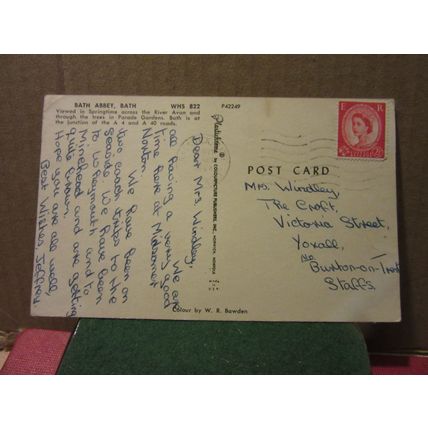 BATH ABBEY, BATH WHS 822
Viewed in Springtime across the River Avon and
through the trees in Parade Gardens. Bath is at
the junction of the A 4 and A 40 roads.
Dear Mrs Windley,
We are
all having a very good
time here at Midsomer
Norton.
We have been on
two coach trips to the
Seaside We have been
to Weymouth and to
Minehead and are getting
quite brown.
Hope you are all well,
Best Wishes Jeffrey
P42249
Plastichrome ®
POST CARD
E R
Mrs. Windley,
The Croft,
Victoria Street,
Yoxall,
Nr Burton-on-Trent
Staffs.
Colour by W. R. Bawden